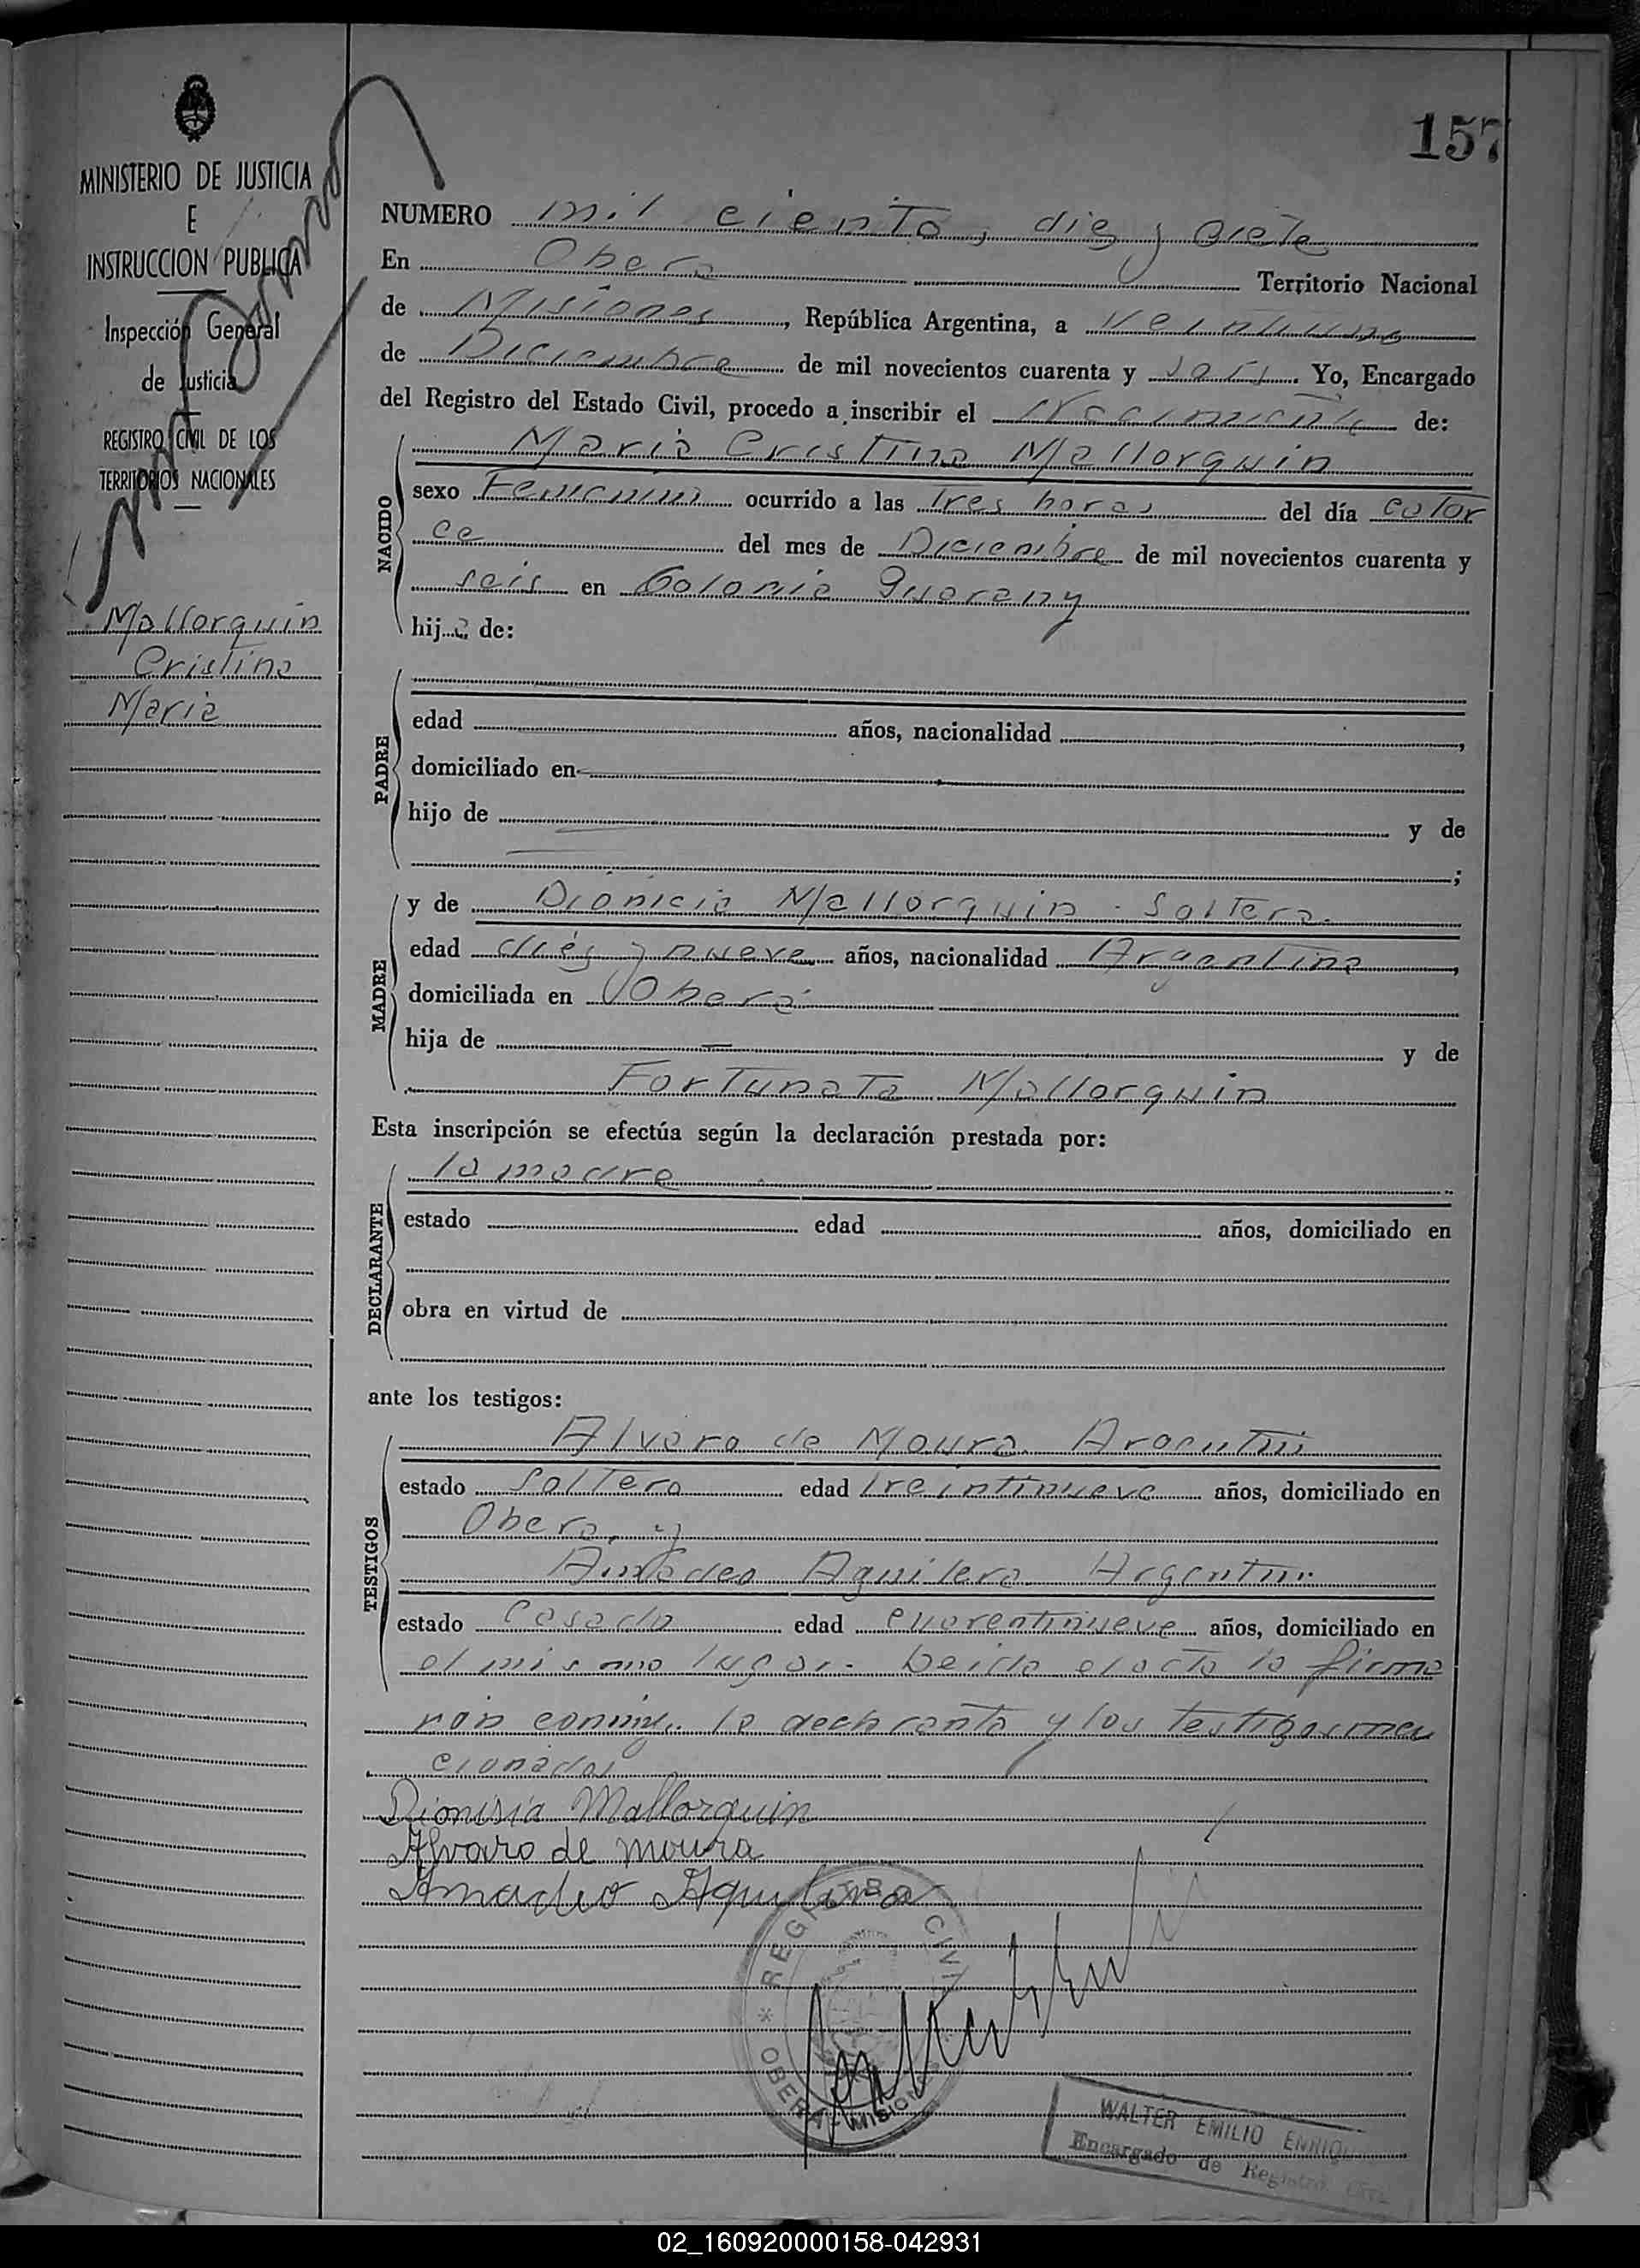 157
MINISTERIO DE JUSTICIA
E
INSTRUCCION PUBLICA
Inspección General
de Justicia
REGISTRO CIVIL DE LOS
TERRITORIOS NACIONALES
Mallorquin
Cristina
Maria
NUMERO mil ciento, diez y siete
En Obera Territorio Nacional
de Misiones, República Argentina, a veintiuno
de Diciembre de mil novecientos cuarenta y seis. Yo, Encargado
del Registro del Estado Civil, procedo a inscribir el nacimiento de:
NACIDO
Maria Cristina Mallorquin
sexo Femenino ocurrido a las tres horas del día cator
ce del mes de Diciembre de mil novecientos cuarenta y
seis en Colonia Guarany
hija de:
PADRE
edad años, nacionalidad ,
domiciliado en
hijo de y de
;
MADRE
y de Dionicia Mallorquin - Soltera.
edad diés y nueve años, nacionalidad Argentina,
domiciliada en Oberá
hija de — y de
Fortunata Mallorquin
Esta inscripción se efectúa según la declaración prestada por:
DECLARANTE
la madre
estado edad años, domiciliado en
obra en virtud de
ante los testigos:
TESTIGOS
Alvaro de Moura
estado Soltero edad treintinueve años, domiciliado en
Obera, y
Amadeo Aguilera Argentin
estado Casado edad cuarentinueve años, domiciliado en
el mismo lugar. Leida el acta la firma
ron conmigo la declarante y los testigos men
cionados
Dionisia Mallorquin
Alvaro de Moura
Amadeo Aguilera
REGISTRO CIVIL
* OBERA - MISIONES
WALTER EMILIO
Encargado de Registro Civil
02_160920000158-042931